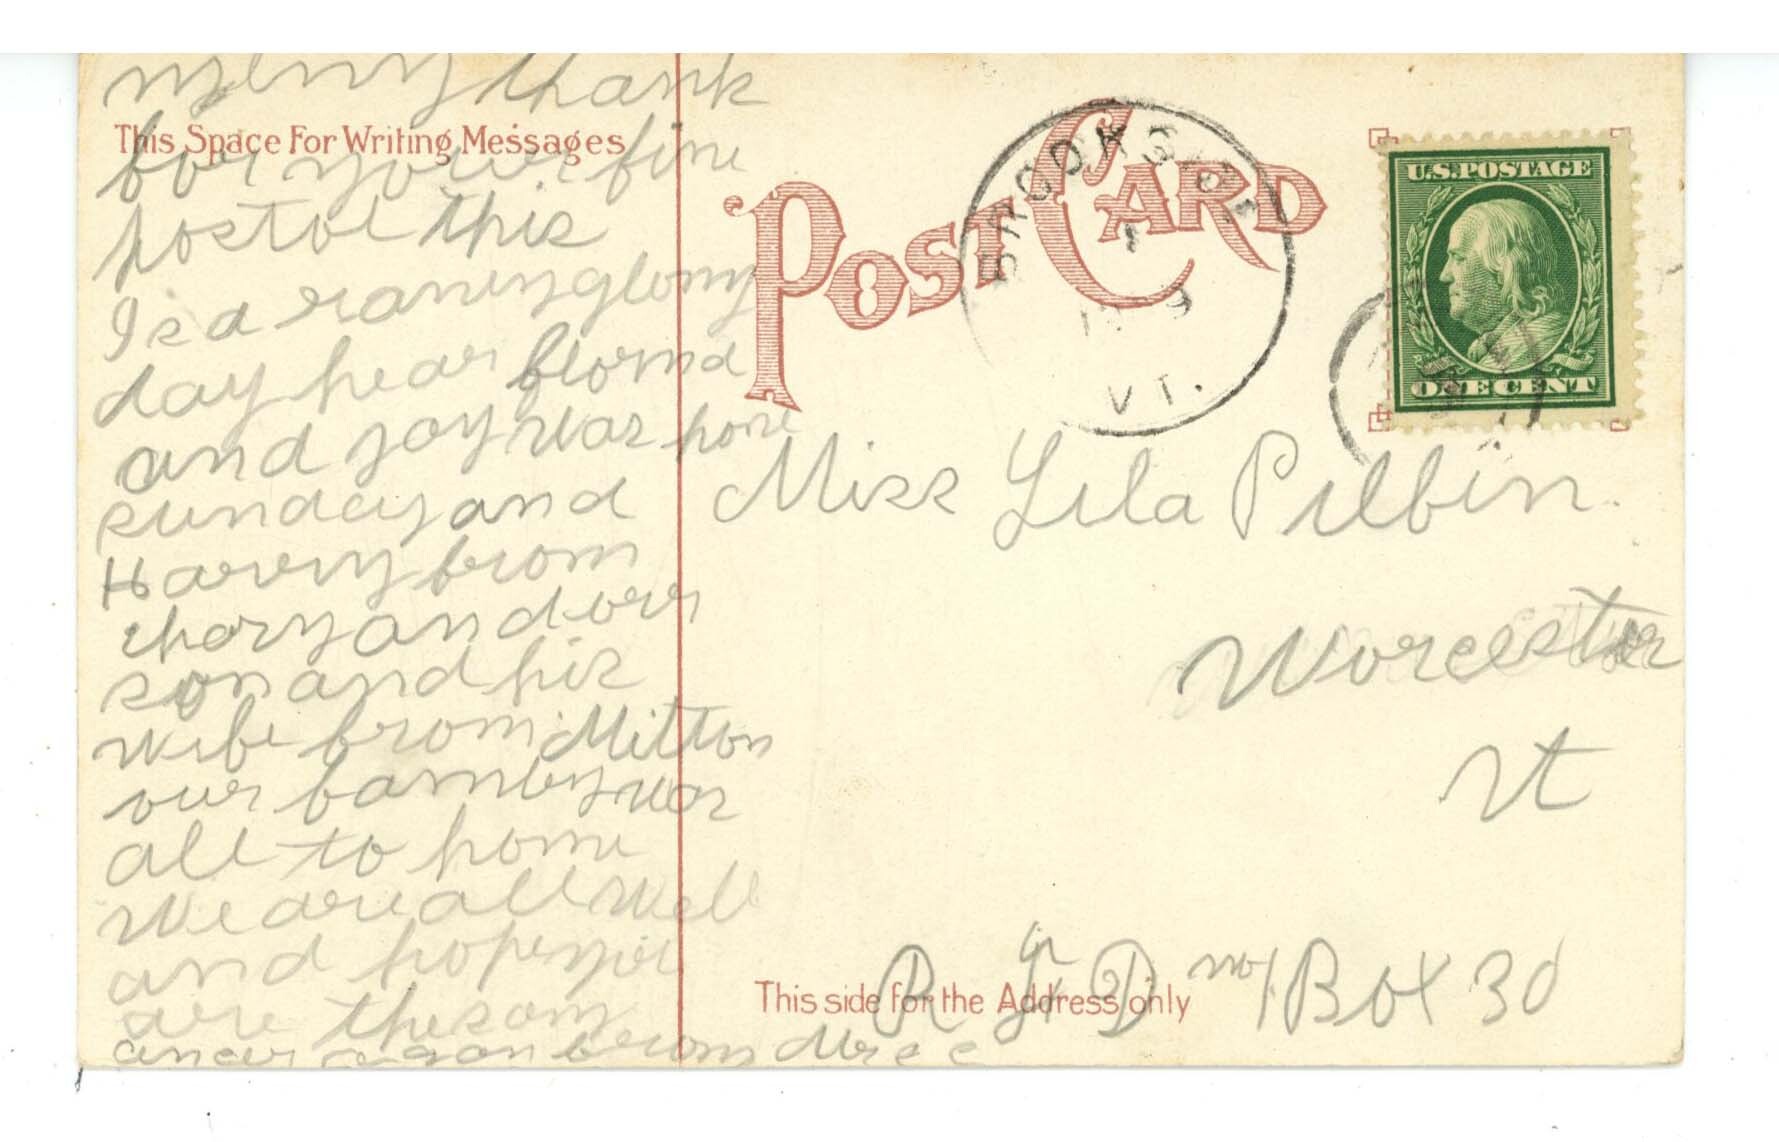 thank
This Space For Writing Messages
for your fine
postol this
Is a raney glomy
day hear flornd
and joy was home
sunday and
Harry from
and our
son and his
wife from Milton
our family was
all to home
We are all Well
and hope you
are the som
from
POST CARD
BROOKSIDE
VT.
U.S. POSTAGE
ONE CENT
Miss Lila Pilbin
Worcester
Vt
This side for the Address only
R F D no 1 Box 30